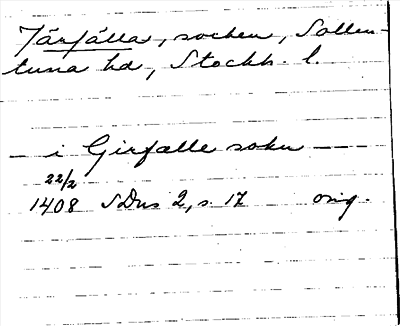 Järfälla, socken, Sollen-
tuna hd, Stockh. l.
— i Girfælle sokn —
22/2
1408 SDns 2, s. 17 orig.